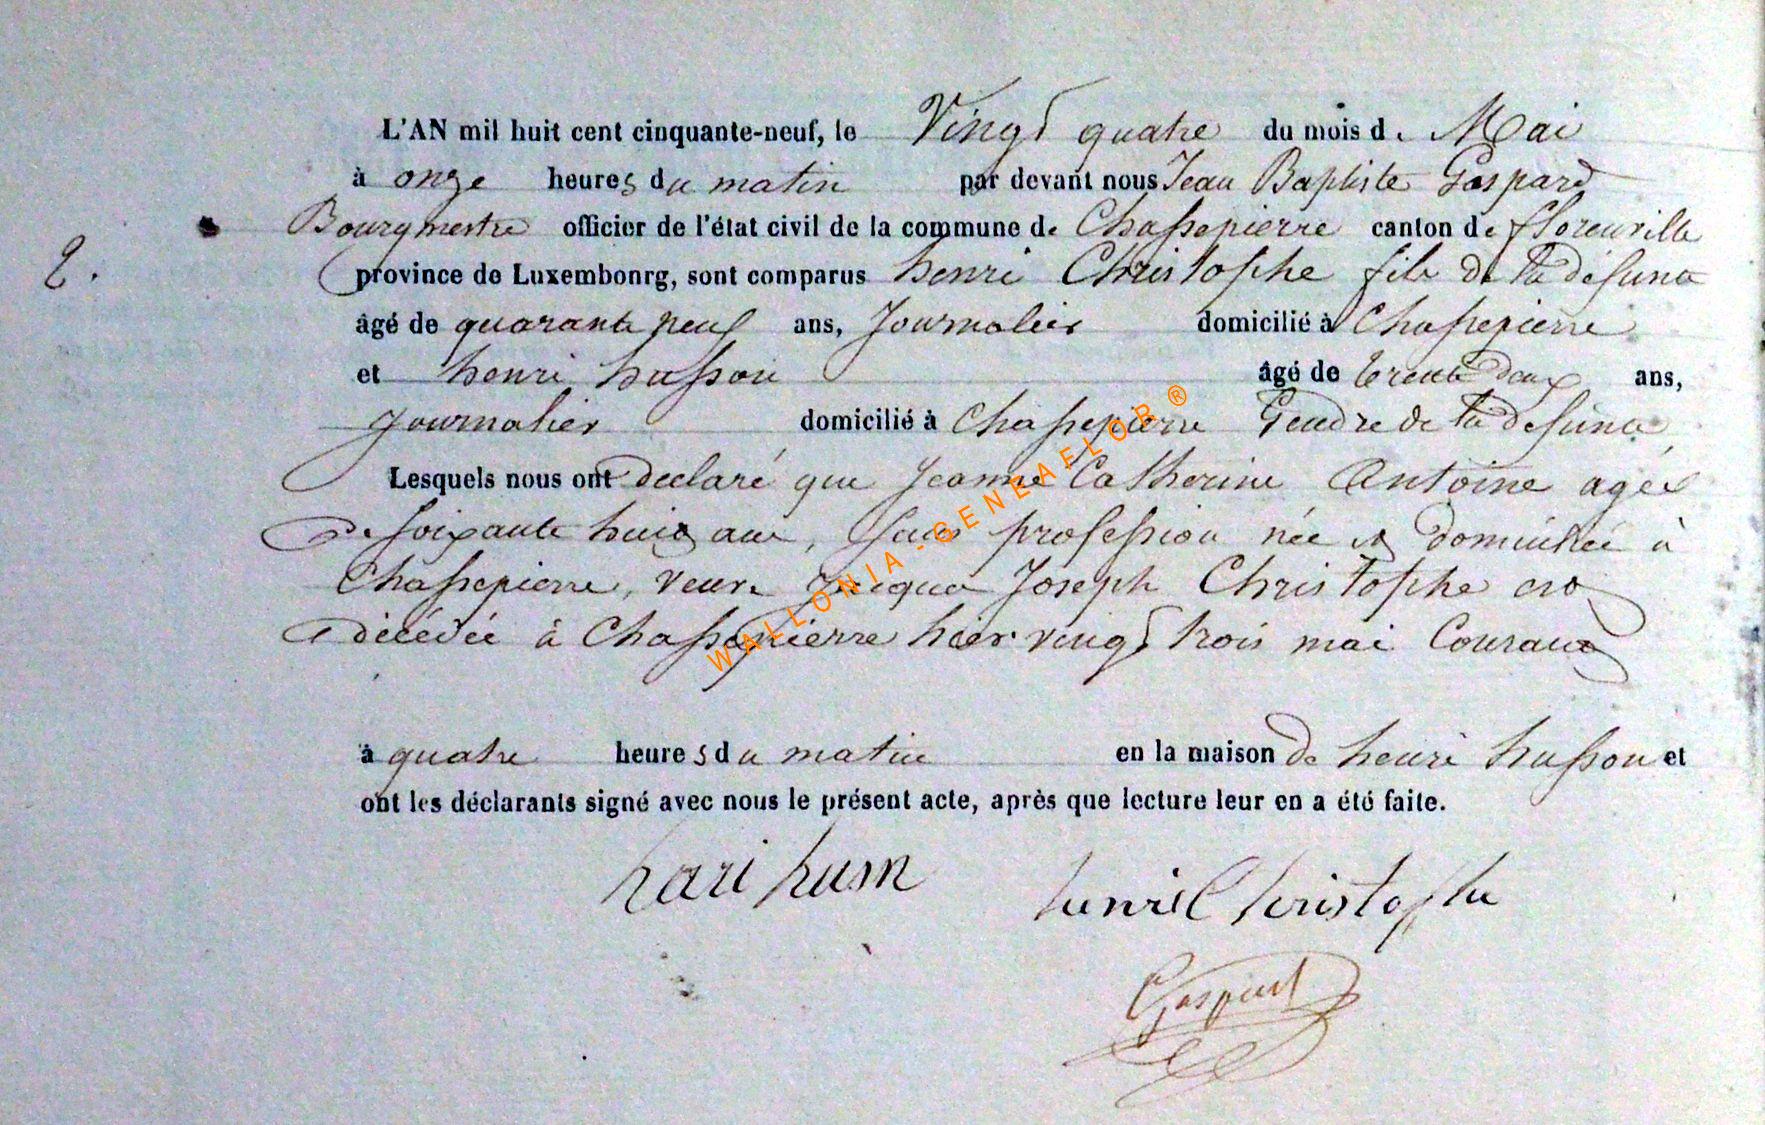 L'AN mil huit cent cinquante-neuf, le Vingt quatre du mois de Mai
à onze heures du matin par devant nous Jean Baptiste Gaspard
Bourgmestre officier de l'état civil de la commune de Chassepierre canton de florenville
2.
province de Luxembonrg, sont comparus henri Christophe fils de la défunte
âgé de quarante neuf ans, Journalier domicilié à Chassepierre
et henri husson âgé de trente deux ans,
journalier domicilié à Chassepierre Gendre de la defunte
Lesquels nous ont declaré que Jeanne Catherine Antoine agée
de soixante huit ans, sans profession née et domiciliée à
Chassepierre, veuve Jacques Joseph Christophe est
décédée à Chassepierre hier vingt trois mai Courant
à quatre heures du matin en la maison de henri husson et
ont les déclarants signé avec nous le présent acte, après que lecture leur en a été faite.
hari husn henri Christophe
Gaspard
WALLONIA-GENEAFLOR®